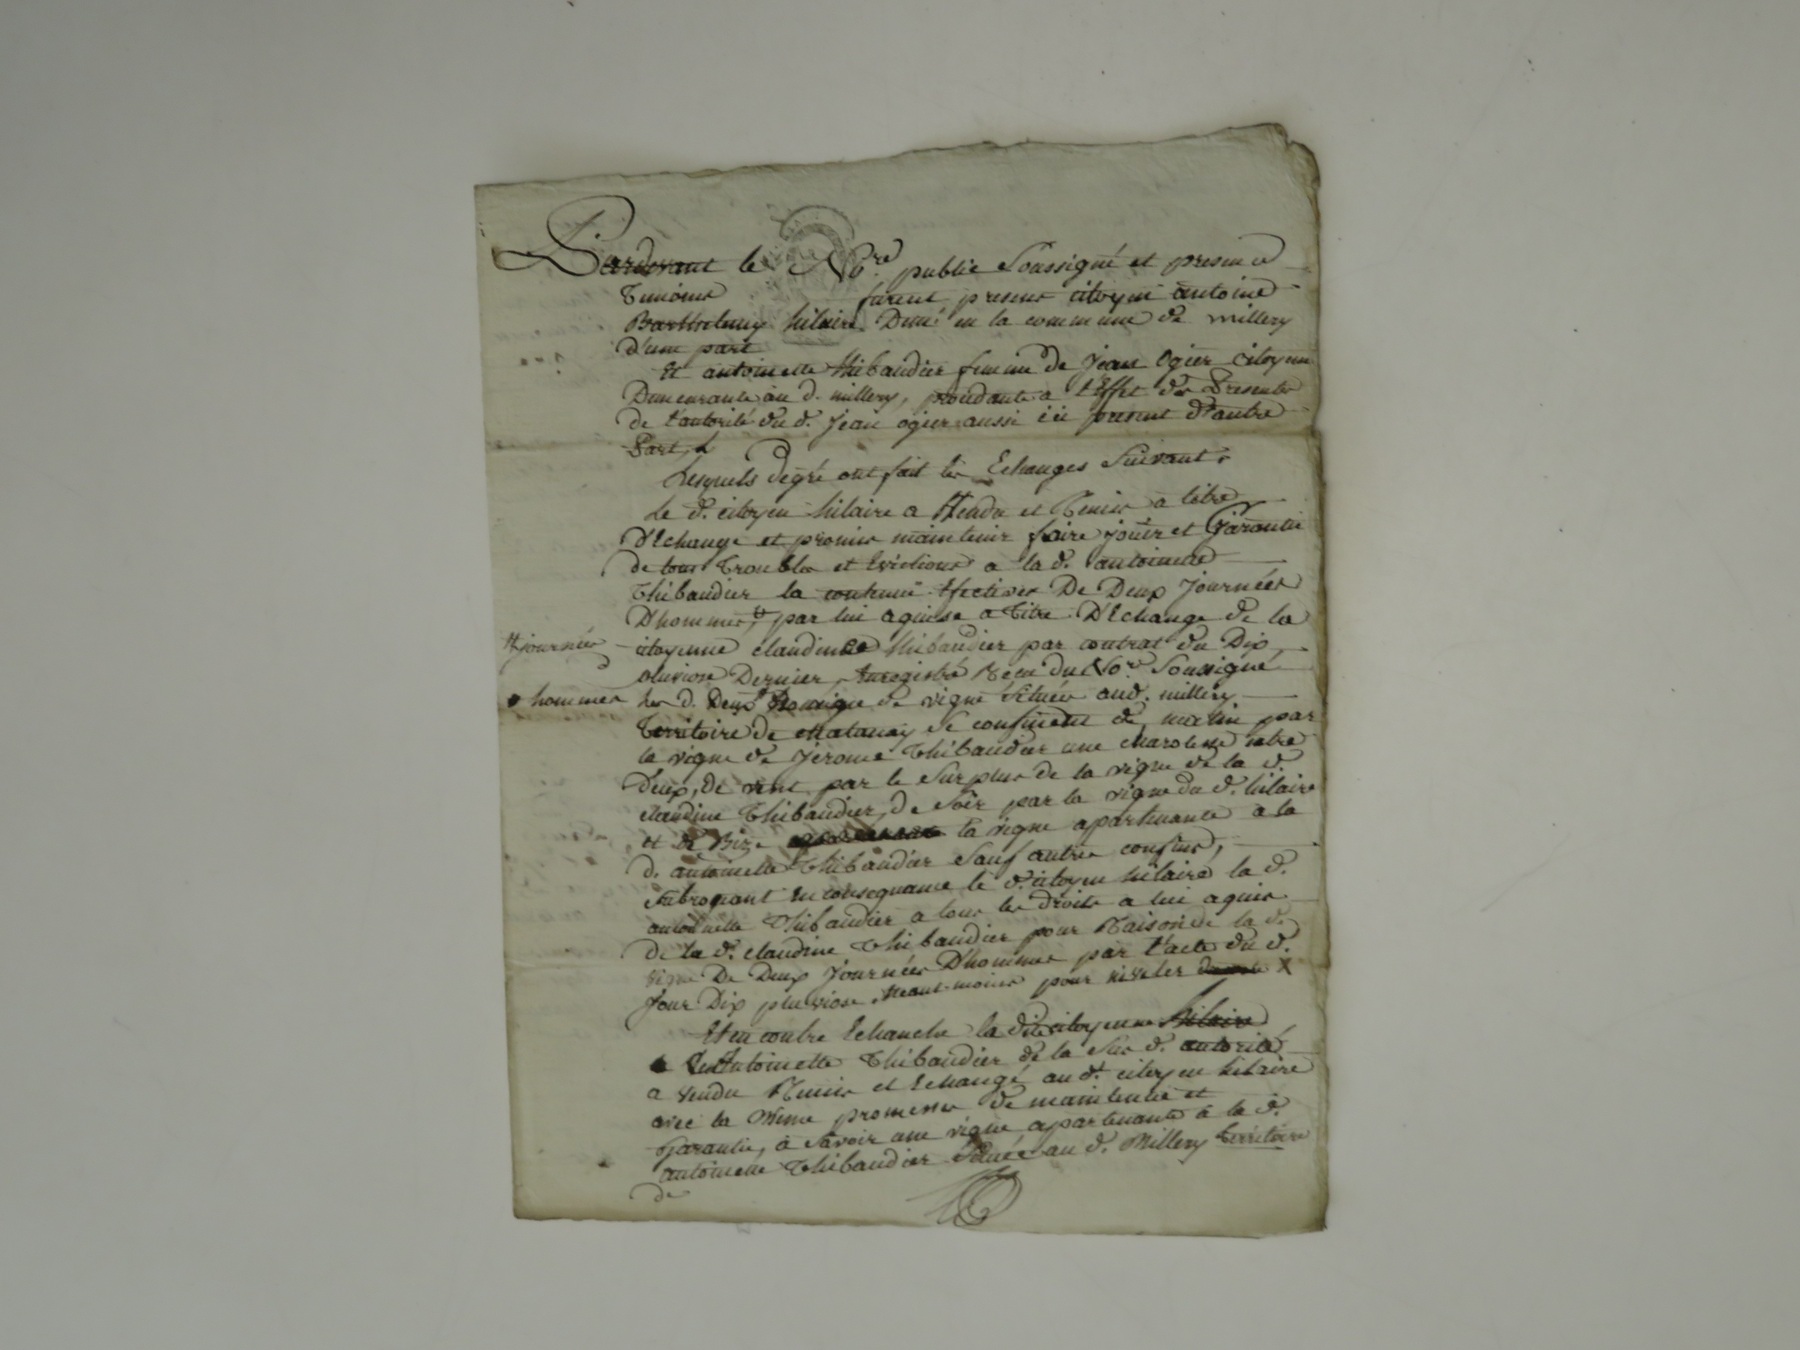 Pardevant le No.re public Soussigné et presence
Temoins furent presens citoyen antoine
Barthelemy hilaire Dem.t en la commune de millery
D'une part
Et antoinette thibaudier femme de Jean Ogier citoyenne
Demeurante au d. millery, procedante a l'Effet des Presentes
de l'autorité du d. Jean ogier aussi ici present d'autre
Part,
Lesquels degré ont fait les Echanges Suivants
Le d. citoyen hilaire a Vendu et Remis a titre
D'Echange et promis maintenir faire jouir et Garantir
de tous Troubles et Evictions a la d. antoinette
Thibaudier la contenue Effective De Deux Journées
D'hommes, # par lui aquise a titre D'Echange de la
# journées
citoyenne claudine thibaudier par contrat du Dix
pluviose Dernier, Enregistré Recu du No.re Soussigné
hommes
les d. Deux de vigne Située aud. millery
Territoire de se confinent de matin par
la vigne de Jerome Thibaudier une entre
Deux, de vent par le Surplus de la vigne de la d.
claudine Thibaudier, de Soir par la vigne du d. hilaire
et de Bize la vigne apartenante a la
d. antoinette Thibaudier Sauf autres confins,
Subrogeant En consequance le d. citoyen hilaire la d.
antoinette Thibaudier a tous les droits a lui aquis
de la d. claudine Thibaudier pour Raison de la d.
vigne De Deux Journées D'hommes par l'acte du d.
Jour Dix pluviose, Neant-moins pour niveler X
Et en contre Echanche la dite citoyenne hilaire
Antoinette Thibaudier de la Sus d. autorité
a vendu Remis et Echangé au d. citoyen hilaire
avec la même promesse de maintenue et
Garantie, à Savoir une vigne apartenante à la d.
antoinette Thibaudier Située au d. Millery territoire
de